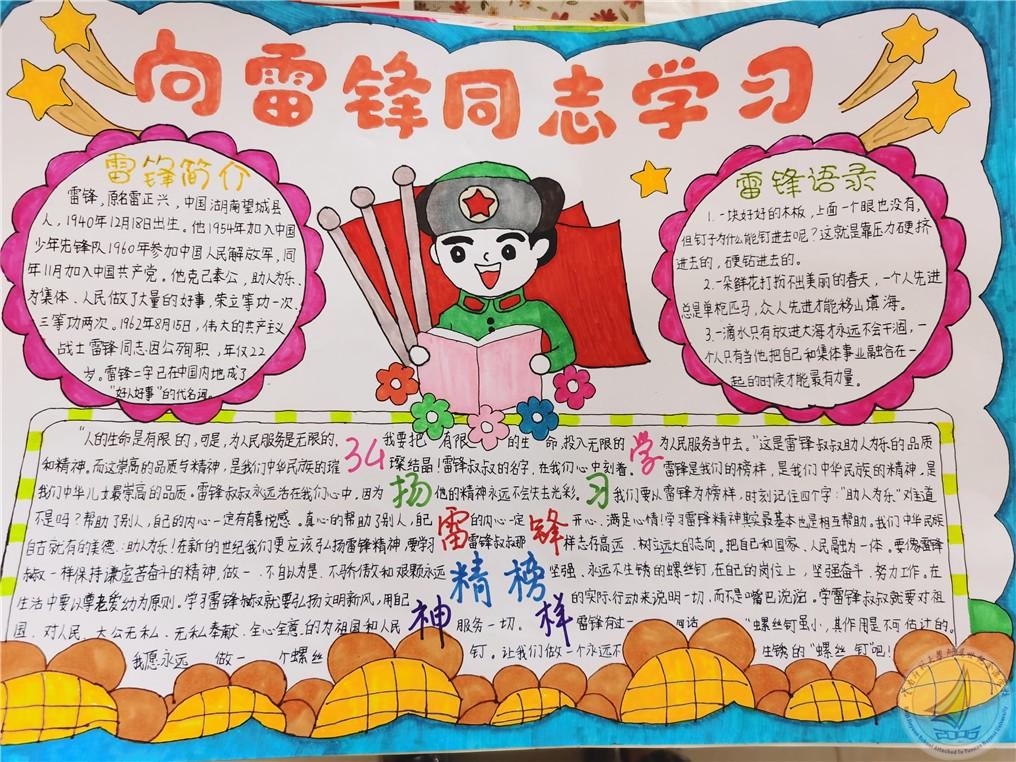 向雷锋同志学习
雷锋简介
雷锋，原名雷正兴，中国湖南望城县
人，1940年12月18日出生。他1954年加入中国
少年先锋队1960年参加中国人民解放军，同
年11月加入中国共产党。他克己奉公，助人为乐，
为集体、人民做了大量的好事，荣立二等功一次、
三等功两次。1962年8月15日，伟大的共产主义
战士雷锋同志因公殉职，年仅22
岁。雷锋二字已在中国内地成了
“好人好事”的代名词。
雷锋语录
1.一块好好的木板，上面一个眼也没有，
但钉子为什么能钉进去呢？这就是靠压力硬挤
进去的，硬钻进去的。
2.一朵鲜花打扮不出美丽的春天，一个人先进
总是单枪匹马，众人先进才能移山填海。
3.一滴水只有放进大海才永远不会干涸，一
个人只有当他把自己和集体事业融合在一
起的时候才能最有力量。
“人的生命是有限的，可是，为人民服务是无限的，我要把有限的生命，投入无限的为人民服务当中去。”这是雷锋叔叔助人为乐的品质
和精神。而这崇高的品质与精神，是我们中华民族的璀璨结晶！雷锋叔叔的名字，在我们心中刻着。雷锋是我们的榜样，是我们中华民族的精神，是
我们中华儿女最崇高的品质。雷锋叔叔永远活在我们心中，因为他的精神永远不会失去光彩。我们要以雷锋为榜样，时刻记住四个字：“助人为乐。”难道
不是吗？帮助了别人，自己的内心一定有喜悦感。真心的帮助了别人，自己的内心一定开心，满足心情！学习雷锋精神其实最基本也是相互帮助。我们中华民族
自古就有的美德：助人为乐！在新的世纪我们更应该弘扬雷锋精神，要学习雷锋叔叔那样志存高远、树立远大的志向。把自己和国家、人民融为一体。要像雷锋
叔叔一样保持谦虚苦奋斗的精神，做一个不自以为是、不骄傲和艰颗永远坚强、永远不生锈的螺丝钉，在自己的岗位上，坚强奋斗、努力工作。在
生活中要以尊老爱幼为原则。学习雷锋叔叔就要弘扬文明新风，用自己的实际行动来说明一切，而不是嘴巴说说。学雷锋叔叔就要对祖
国、对人民、大公无私、无私奉献、全心全意的为祖国和人民服务一切。雷锋有过一句话“螺丝钉虽小，其作用是不可估计的。
我愿永远做一个螺丝钉。让我们做一个永远不生锈的“螺丝钉吧！
弘扬雷锋精神
学习雷锋榜样